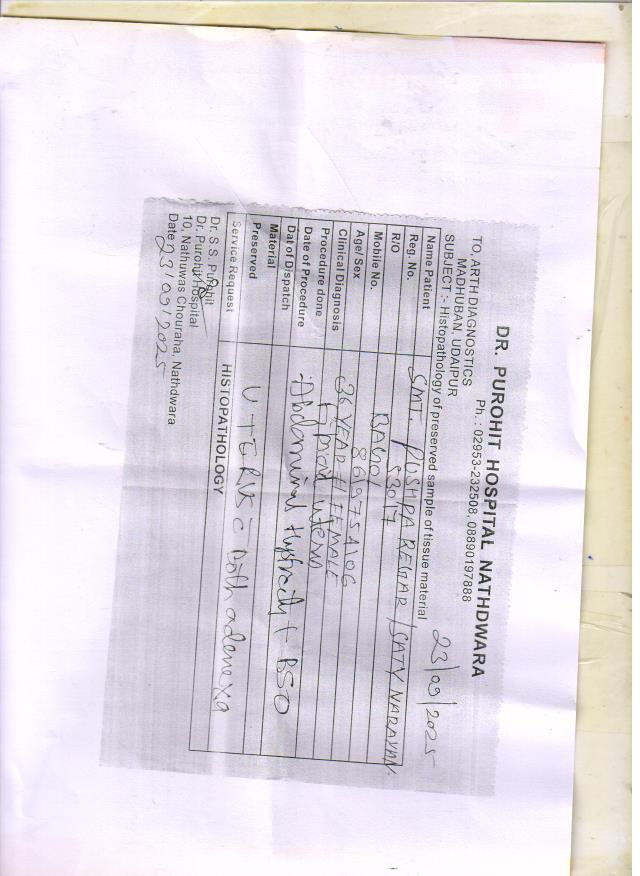 DR. PUROHIT HOSPITAL NATHDWARA
Ph.: 02953-232508, 08890197888
TO, ARTH DIAGNOSTICS
MADHUBAN, UDAIPUR
23/09/2025
SUBJECT :- Histopathology of preserved sample of tissue material
Name Patient SMT. PUSHPA REGAR / SATY NARAYAN
Reg. No. 53017
R/O BAGOL
Mobile No.
Age/ Sex 36 YEAR / FEMALE
Clinical Diagnosis
Procedure done Abdominal + BSO
Date of Procedure
Dat of Dispatch
Material UTERUS c Both adenexa
Preserved
Service Request HISTOPATHOLOGY
Dr. S.S. Purohit
Dr. Purohit Hospital
10, Nathuwas Chouraha, Nathdwara
Date 23/09/2025